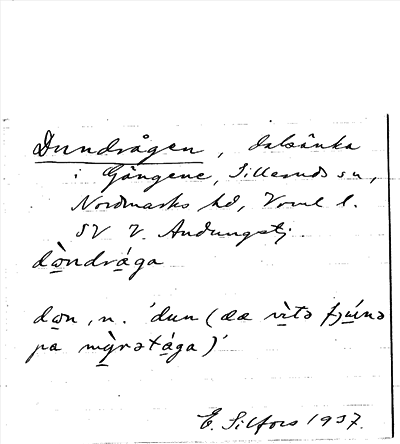 Dundrågen, dalsänka
i Gängene, Silleruds sn,
Nordmarks hd, Vrml l.
SV V. Andungstj.
dὼndrá̱ga
dωn, n. 'dun (dæ vì̱tə fjú̱nə
pa mỳ̱rətá̱ga)'
E. Silfors 1937.